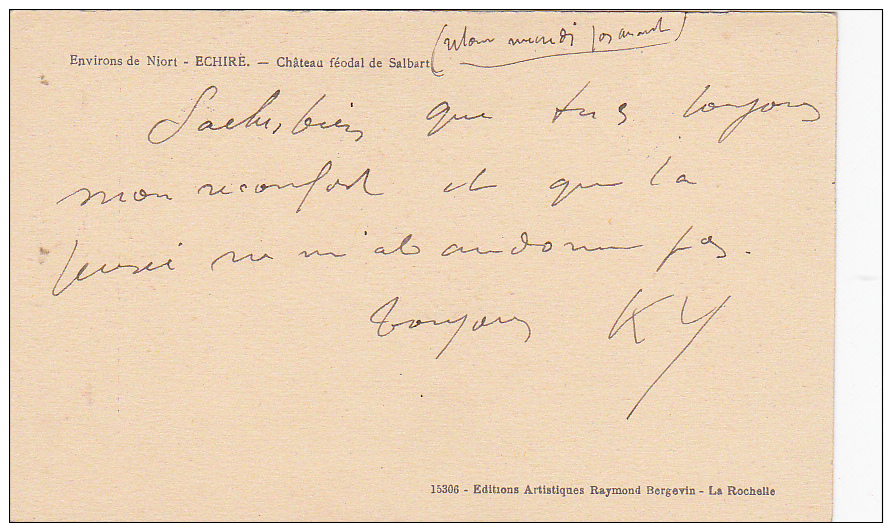 Environs de Niort - ECHIRÉ. — Château féodal de Salbart
(retour mercredi
Sache, bien, que tu es toujours
mon reconfort et que ta
pensée ne m'abandonne pas.
Toujours KY
15306 - Editions Artistiques Raymond Bergevin - La Rochelle